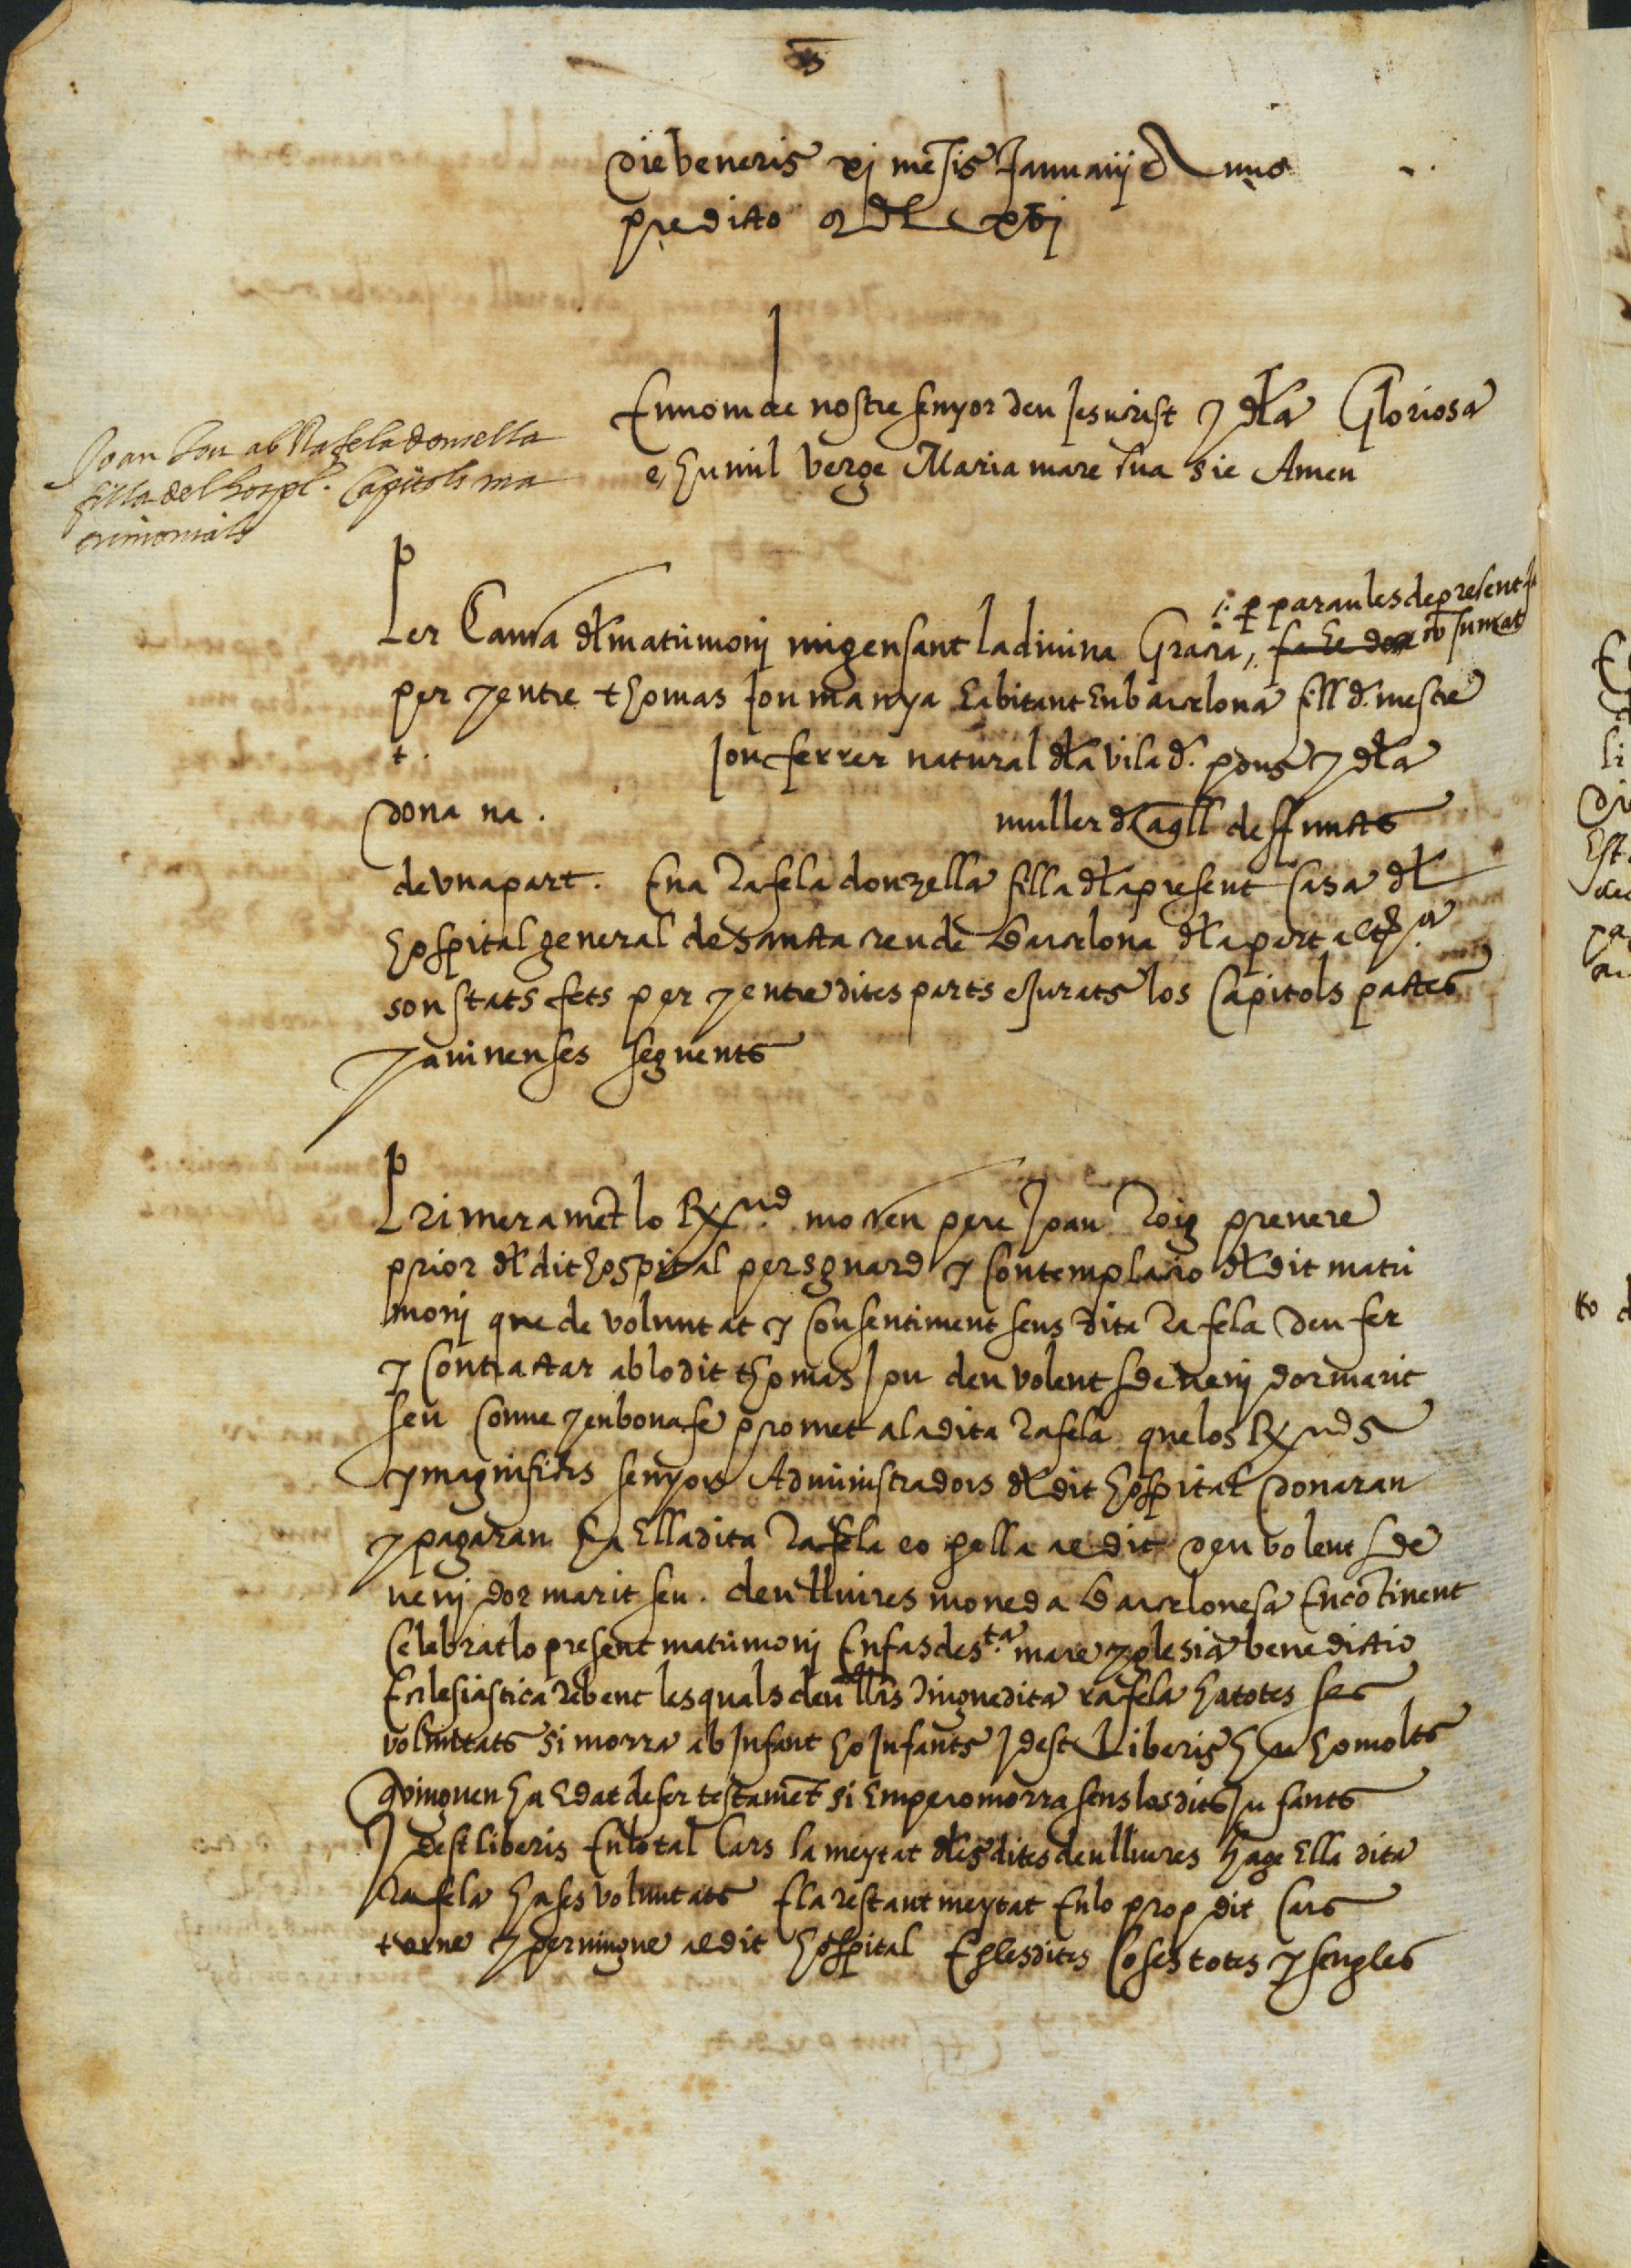 die veneris xj mēsis Januarij Anno
predicto MDLxvj
En nom de nostre senyor deu Jesucrist y dła Gloriosa
e humil verge Maria mare sua sie Amen
Joan Jou ab Rafela donsella
filla del hospl. Capitols ma
trimonials
Per Causa dł matrimoni migensant la divina Gracia, p̱ paraules de present
cōsumat
per y entre thomas Jou manya habitant En barcelona fill d. mestre
t. Jou ferrer natural dła vila d. pons y dła
dona na. muller d aq̄ll deffuncts
de vna part. E na Rafela donzella filla dła present Casa dł
hospital general de sancta creu de Barcelona dła part altra
son stats fets per y entre dites parts e Jurats los Capitols pactes
y avinenses seguents
Primeramēt lo Rxnd mossen pere Joan Roig prevere
prior dł dit hospital per sguard y Contemplacio dł dit matri
moni que de voluntat y Consentiment seus dita Rafela deu fer
y Contractar ab lo dit thomas Jou deu volent sdevenj dor marit
seu Conve y en bona fe promet a la dita Rafela que los Rxnds
y magnifichs senyors Administradors dł dit hospital donaran
y pagaran ha Ella dita Rafela eo per ella al dit deu volent sde
venj dor marit seu. deu lliures moneda Barcelonesa Encōtinent
Celebrat lo present matrimonj En fas de sta. mare yglesia benedictio
Ecclesiastica rebent les quals deu llrs vingue dita rafela ha totes ses
voluntats si morra ab Infant ho Infants Id est Liberis hu ho molts
qui vinguen ha Edat de fer testamēt si Empero morra sens los dits Infants
Id est liberis En lo tal Cars la meytat dłes dites deu lliures hage Ella dita
Rafela ha ses voluntats E la restant meytat En lo prop dit Cars
torne y pervingue al dit hospital E les dites Coses totes y sengles